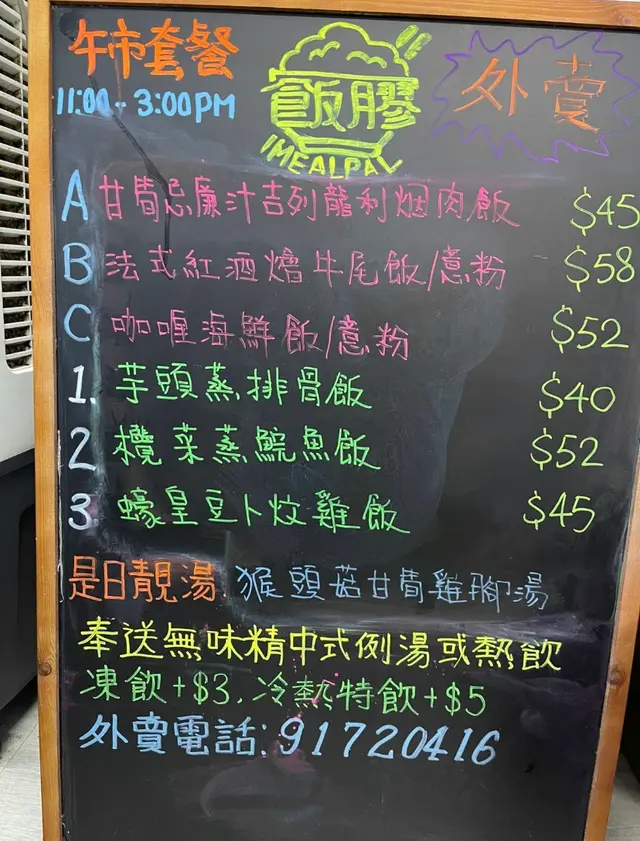 午市套餐
11:00 - 3:00PM
飯膠
MEALPAL
外賣
A 甘筍忌廉汁吉列龍利烟肉飯 $45
B 法式紅酒燴牛尾飯/意粉 $58
C 咖喱海鮮飯/意粉 $52
1. 芋頭蒸排骨飯 $40
2 欖菜蒸鯇魚飯 $52
3 蠔皇豆卜炆雞飯 $45
是日靚湯: 猴頭菇甘筍雞腳湯
奉送無味精中式例湯或熱飲
凍飲+$3, 冷熱特飲+$5
外賣電話: 91720416